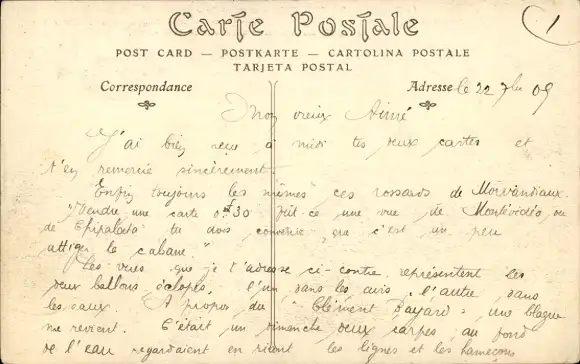 Carte Postale
POST CARD — POSTKARTE — CARTOLINA POSTALE
TARJETA POSTAL
Correspondance
Adresse
le 22 7bre 09
1
Mon vieux Aimé
J'ai bien reçu à midi tes deux cartes et
t'en remercie sincèrement.
Enfin toujours les mêmes ces rossards de Morvandiaux.
"Vendre une carte 0f30 fût-ce une vue de Montévidéo, ou
de tu dois convenir que c'est un peu
attiger la cabane."
Les vues que je t'adresse ci-contre représentent les
deux ballons éclopés, l'un dans les airs, l'autre dans
les eaux. A propos du "Clément Bayard", une blague
me revient. C'était un dimanche deux carpes au fond
de l'eau regardaient en riant les lignes et les hameçons